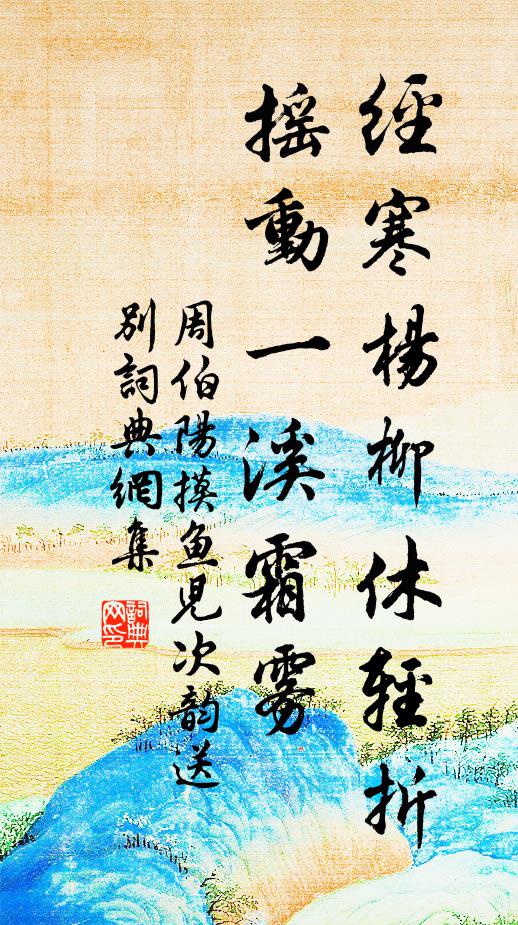 經寒楊柳休輕折
搖動一溪霜雾
周伯陽摸鱼児次韵送
别詞典網集
詞典网印